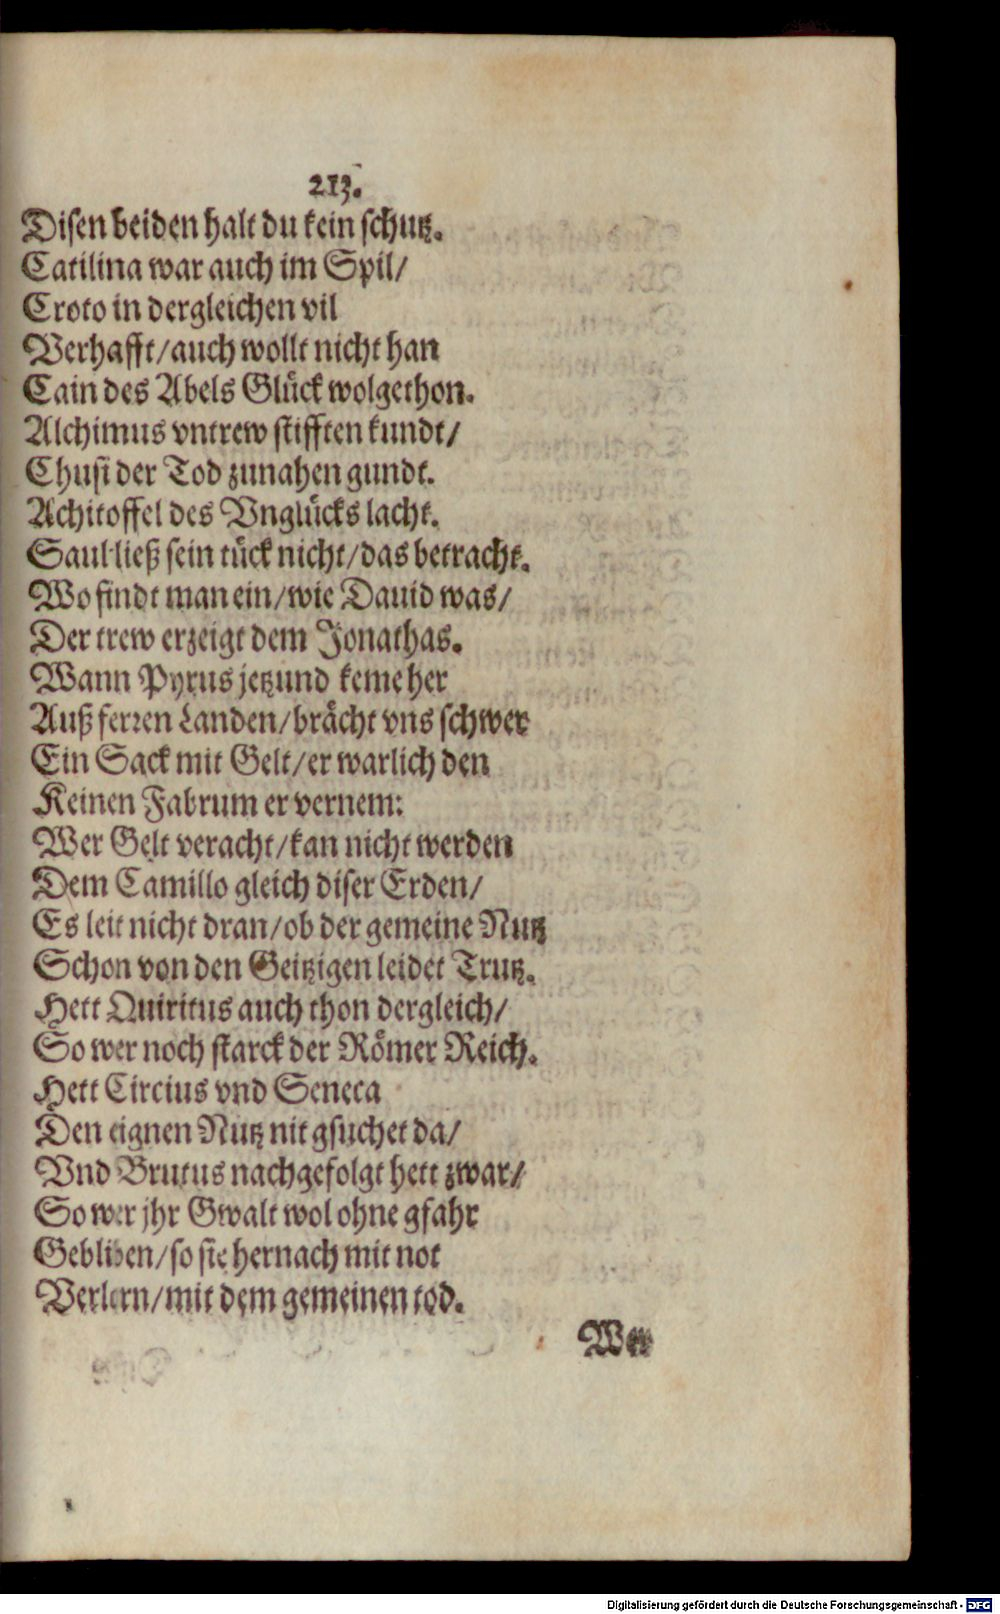 213.
Disen beiden halt du kein schutz.
Catilina war auch im Spil/
Croto in dergleichen vil
Verhafft/auch wollt nicht han
Cain des Abels Glück wolgethon.
Alchimus vntrew stifften kundt/
Chusi der Tod zunahen gundt.
Achitoffel des Vnglücks lacht.
Saul ließ sein tück nicht/das betracht.
Wo findt man ein/wie Dauid was/
Der trew erzeigt dem Jonathas.
Wann Pyrus jetzund keme her
Auß ferren Landen/brächt vns schwer
Ein Sack mit Gelt/er warlich den
Keinen Fabrum er vernem:
Wer Gelt veracht/kan nicht werden
Dem Camillo gleich diser Erden/
Es leit nicht dran/ob der gemeine Nutz
Schon von den Geitzigen leidet Trutz.
Hett Quiritus auch thon dergleich/
So wer noch starck der Römer Reich.
Hett Circius vnd Seneca
Den eignen Nutz nit gsuchet da/
Vnd Brutus nachgefolgt hett zwar/
So wer jhr Gwalt wol ohne gfahr
Gebliben/so sie hernach mit not
Verlern/mit dem gemeinen tod.
Wer
Digitalisierung gefördert durch die Deutsche Forschungsgemeinschaft - DFG